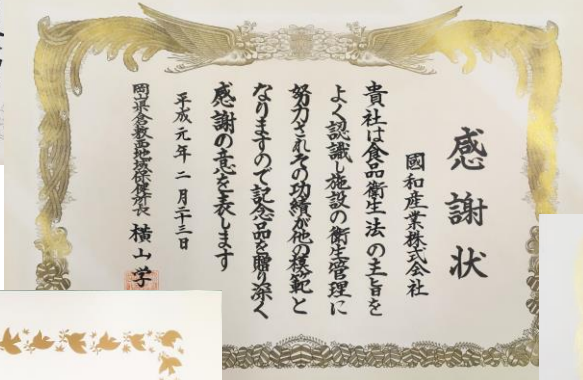 感謝状
國和産業株式会社
貴社は食品衛生法の主旨を
よく認識し施設の衛生管理に
努力されその功績が他の模範と
なりますので記念品を贈り深く
感謝の意を表します
平成元年二月二十三日
岡山県倉敷西地域保健所長 横山学